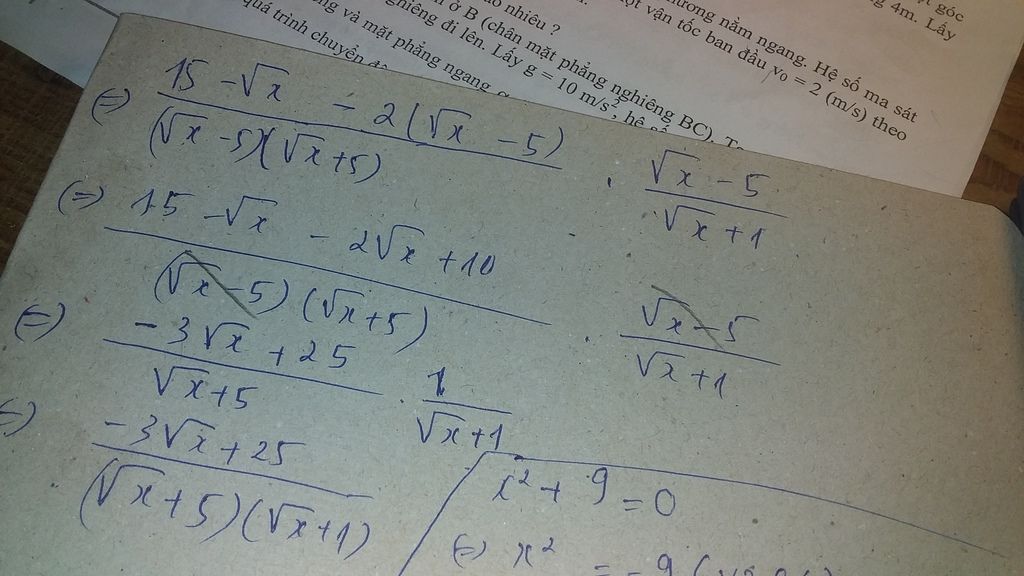 g góc
g 4m. Lấy
hương nằm ngang. Hệ số ma sát
ột vận tốc ban đầu v₀ = 2 (m/s) theo
o nhiêu ?
n ở B (chân mặt phẳng nghiêng BC).
nghiêng đi lên. Lấy g = 10 m/s², hệ số
ng và mặt phẳng ngang
quá trình chuyển
(=) (15 - √x - 2(√x - 5)) / ((√x - 5)(√x + 5)) . (√x - 5) / (√x + 1)
(=) (15 - √x - 2√x + 10) / ((√x - 5)(√x + 5)) . (√x - 5) / (√x + 1)
(=) (-3√x + 25) / (√x + 5) . 1 / (√x + 1)
(=) (-3√x + 25) / ((√x + 5)(√x + 1))
x² + 9 = 0
(=) x² = -9